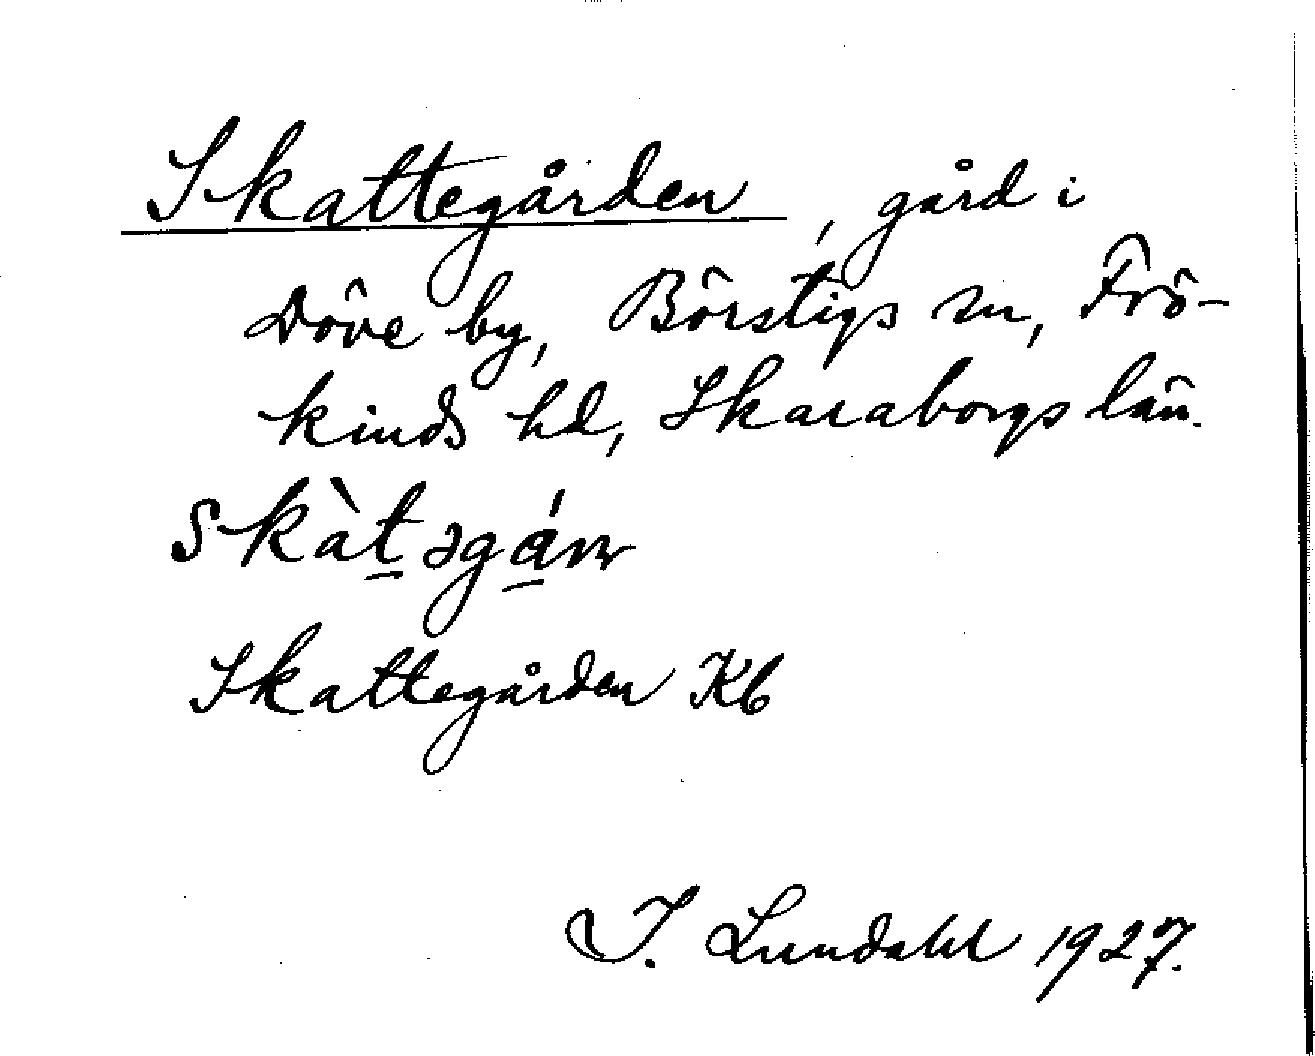 Skattegården, gård i
Döve by, Börstigs sn, Frö-
kinds hd, Skaraborgs län.
Skattegården Kb
I. Lundahl 1927.